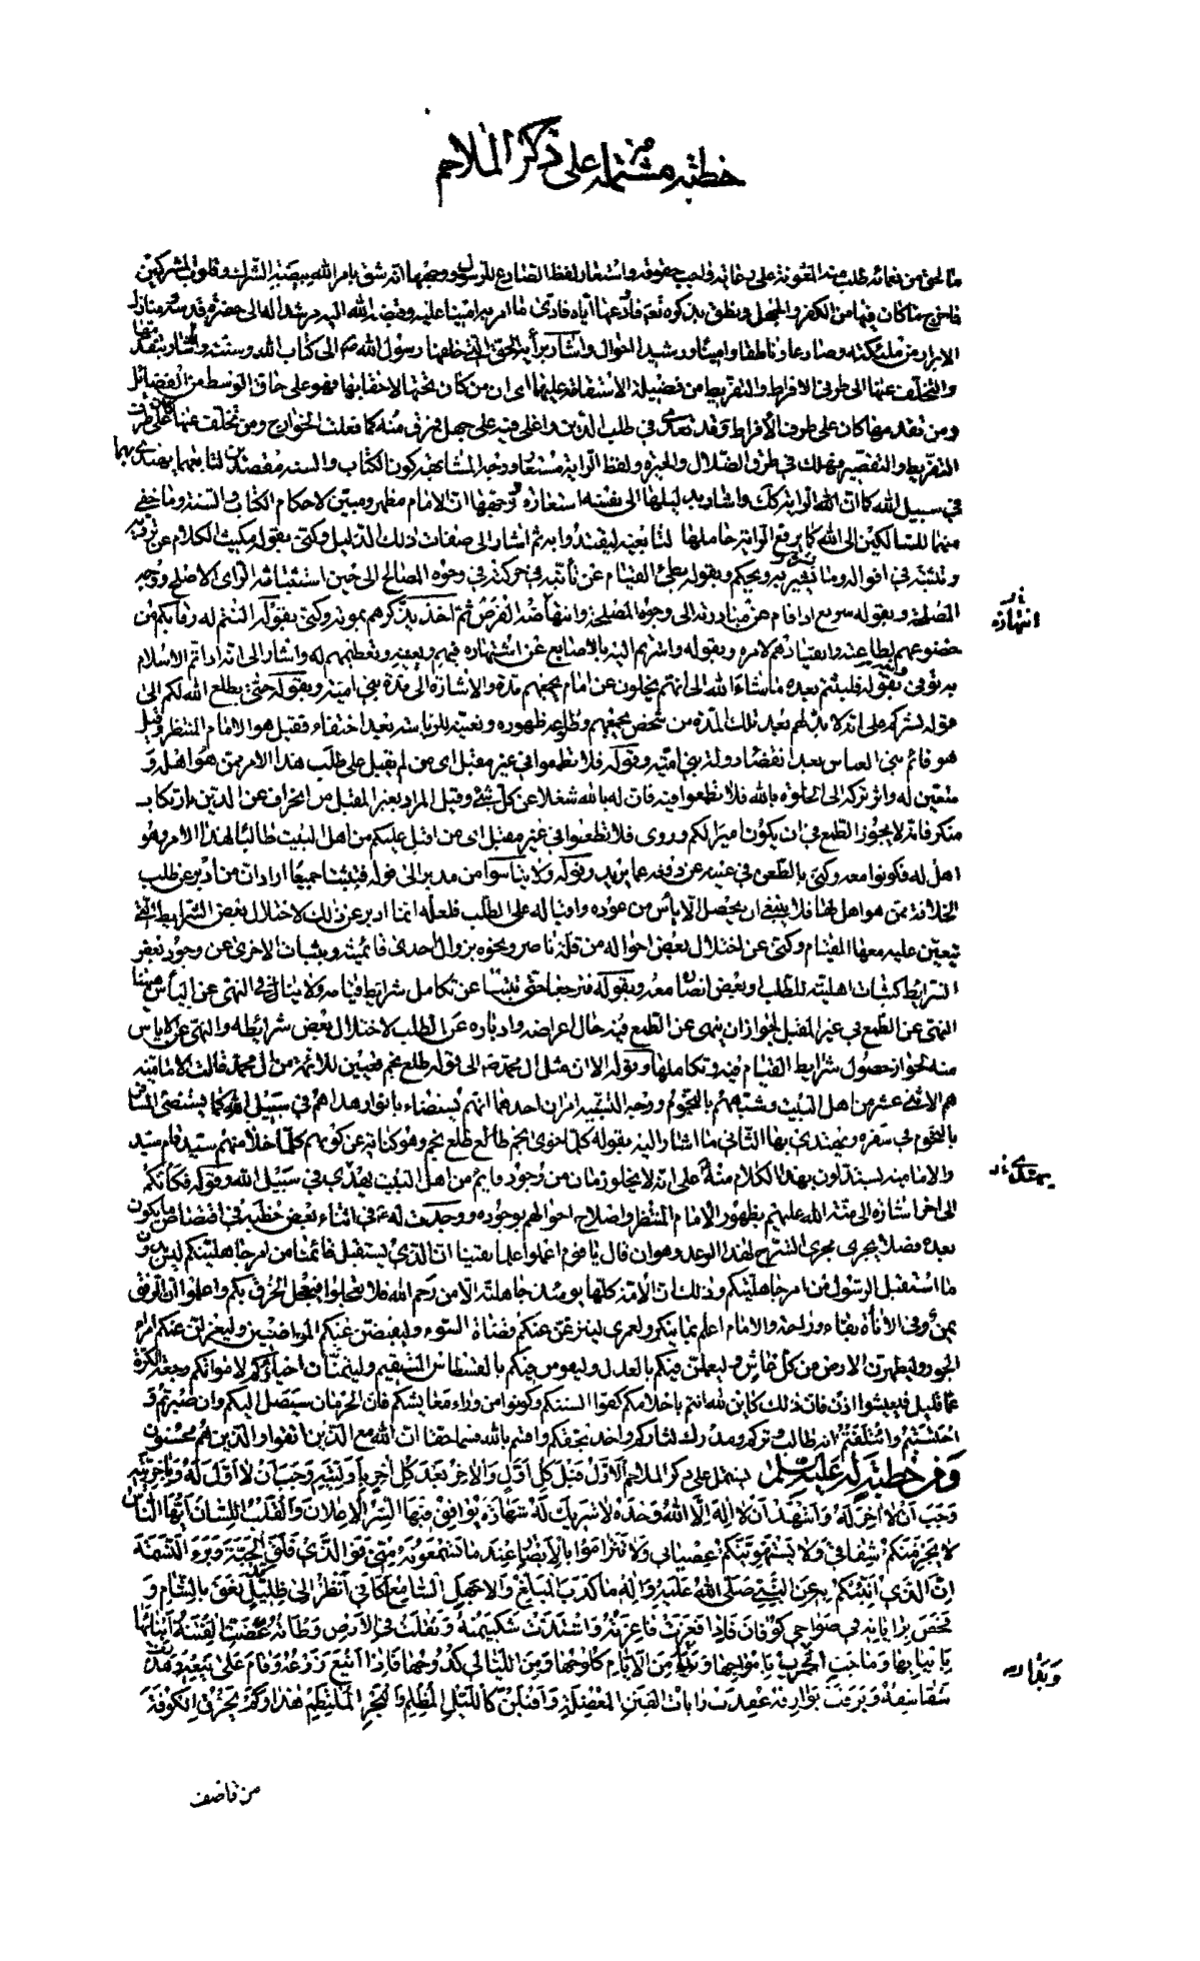 خطبته مشتملة على ذكر الملاحم
ما لحق من نعمائه طلب منه المعونة على رعاية واجب حقوقه واستعار لفظ الصادع للرسول ووجهها انه شق بامر الله بيضة الشرك وقلوب المشركين
فاخرج ما كان فيها من الكفر والجهل ونطق بذكره فادى ما امر به امينا عليه وقبضه الله اليه مرشدا له الى حضرة قدسه منازل
الابرار من ملئكته وصار عارفا ناطقا وامينا ورشيد احوال واشار براية الحق التي خلفها رسول الله ص الى كتاب الله وسنته واشار بتقدمها
والتخلف عنها الى طرفي الافراط والتفريط من فضيلة الاستقامة عليها اى ان من كان تحتها لاحقا بها فهو على حاق الوسط من الفضائل
ومن تقدمها كان على طرف الأفراط وقد تعدى في طلب الدين واغلى فيه على جهل فمرق منه كما فعلت الخوارج ومن تخلف عنها كان على طرف
التفريط والتقصير فهلك في طرق الضلال والحيرة ولفظ الراية مستعار ووجه المشابهة كون الكتاب والسنة مقصدين لتابعهما يهتدى بهما
في سبيل الله كما ان الراية كك واشار بدليلها الى نفسه استعارة ووجهها ان الامام مظهر ومبين لاحكام الكتاب والسنة وما خفى
منهما للسالكين الى الله كما يرفع الراية حاملها لتابعيه ليقتدوا به ثم اشار الى صفات ذلك الدليل وكنى بقوله مكيث الكلام عن ترويه
وتثبته في اقواله وما يشير به ويحكم وبقوله بطئ القيام عن تأنيه في حركته في وجوه المصالح الى حين استثباته الراى الاصلح ووجه
المصلحة وبقوله سريع اذا قام عن مبادرته الى وجوه المصلحة وانتهاضه الفرص ثم اخذ يذكرهم بموته وكنى بقوله النتم له رقابكم عن
خضوعهم لطاعته وانقيادهم لامره وبقوله واشرتم اليه بالاصابع عن اشتهاره فيهم وتعظيمهم له واشار الى انه اذا تم الاسلام
به توفى وبقوله فلبثتم بعده ما شاء الله الى انهم يخلون عن امام يجمعهم مدة والاشارة الى مدة بنى امية وبقوله حتى يطلع الله لكم الى
قوله نشركم على انه لا بد لهم بعد تلك المدة من شخص يجمعهم وطلوعه ظهوره وتعينه للرياسة بعد اختفاء فقيل هو الامام المنتظر وقيل
هو قائم بنى العباس بعد انقضاء دولة بنى امية وقوله فلا تطمعوا في غير مقبل اى من لم يقبل على طلب هذا الامر ممن هو اهله و
متعين له واثر تركه الى الخلوة بالله فلا تطمعوا فيه فان له بالله شغلا عن كل شئ وقيل المراد بغير المقبل من انحراف عن الدين بارتكاب
منكر فانه لا يجوز الطمع في ان يكون اميرا لكم وروى فلا تطعنوا في غير مقبل اى من اقبل عليكم من اهل البيت طالبا لهذا الامر وهو
اهل له فكونوا معه وكنى بالطعن في عينه عن دفعه عما يريد وقوله ولا تيأسوا من مدبر الى قوله فتثبتا جميعا اراد ان من ادبر عن طلب
الخلافة ممن هو اهل لها فلا ينبغى ان يحصل الاياس من عوده واقباله على الطلب فلعله انما ادبر عن ذلك لاختلال بعض الشرايط التى
تتعين عليه معها القيام وكنى عن اختلال بعض احواله من قلة ناصر ونحوه بزوال احدى قائمتيه وبثبات الاخرى عن وجود بعض
الشرايط كثبات اهليته للطلب وبعض انصاره معه وبقوله فترجعا حتى تثبتا عن تكامل شرايط قيامه ولا ينافى النهى عن اليأس ههنا
النهى عن الطمع في غير المقبل لجواز ان ينهى عن الطمع فيه حال اعراضه وادباره عن الطلب لاختلال بعض شرائطه والنهى عن الاياس
منه لجواز حصول شرايط القيام فيه وتكاملها وقوله الا ان مثل ال محمد ص الى قوله طلع نجم تعيين للائمة من ال محمد قالت الامامية
هم الاثنى عشر من اهل البيت وشبههم بالنجوم ووجه الشبه امران احدهما انهم يستضاء بانوار هداهم في سبيل الله كما يستضئ المسافر
بالنجوم في سفره ويهتدى بها الثانى ما اشار اليه بقوله كلما خوى نجم طالع طلع نجم وهو كناية عن كونهم كلما خلا منهم سيد قام سيد
والامامية يستدلون بهذا الكلام منه على انه لا يخلو زمان من وجود قايم من اهل البيت يهتدى في سبيل الله وقوله فكأنكم
الى اخره اشارة الى منة الله عليهم بظهور الامام المنتظر واصلاح احوالهم بوجوده ووجدت له ع في اثناء بعض خطبه في اقتصاص ما يكون
بعده فصلا يجرى مجرى الشرح لهذا الوعد وهو ان قال يا قوم اعلموا علما يقينا ان الذى يستقبل قائمنا من امر جاهليتكم ليس بدون
ما استقبل الرسول من امر جاهليتكم وذلك ان الامة كلها يومئذ جاهلية الا من رحم الله فلا تعجلوا فيعجل الخرق بكم واعلموا ان الرفق
يمن وفى الاناة بقاء وراحة والامام اعلم بما ينكر ولعمرى لينزعن عنكم قضاة السوء وليقبضن عنكم المراضين وليعزلن عنكم امراء
الجور وليطهرن الارض من كل غاش وليعملن فيكم بالعدل وليقومن فيكم بالقسطاس المستقيم وليتمنأن احياؤكم لامواتكم رجعة الكرة
عما قليل فيعيشوا اذن فان ذلك كاين لله انتم باحلامكم كفوا السنتكم وكونوا من وراء معايشكم فان الحرمان سيصل اليكم وان صبرتم و
احتسبتم وائتلفتم انه طالب وتركم ومدرك لثاركم واخذ بحقكم واقسم بالله قسما حقا ان الله مع الذين اتقوا والذين هم محسنون
ومن خطبة له عليه السلم يشتمل على ذكر الملاحم الاول قبل كل اول والاخر بعد كل اخر باوليته وجب ان لا اول له وباخريته
وجب ان لا اخر له واشهد ان لا اله الا الله وحده لا شريك له شهادة يوافق فيها السر الاعلان والقلب اللسان ايها الناس
لا يجرمنكم شقاقى ولا يستهوينكم عصيانى ولا تتراموا بالابصار عند ما تسمعونه منى فو الذى فلق الحبة وبرء النسمة
ان الذى انبئكم به عن النبى صلى الله عليه واله ما كذب المبلغ ولا جهل السامع لكانى انظر الى ضليل قد نعق بالشام و
فحص براياته في ضواحى كوفان فاذا فغرت فاغرته واشتدت شكيمته وثقلت في الارض وطاته عضت الفتنة ابنائها
بانيابها وماجت الحرب بامواجها وبدا من الايام كلوحها ومن الليالى كدوحها فاذا اينع زرعه وقام على ينعه وهدرت
شقاشقه وبرقت بوارقه عقدت رايات الفتن المعضلة واقبلن كالليل المظلم والبحر الملتطم هذا وكم يخرق الكوفة
انتهازه
يهتدى
وبدا
من قاصف